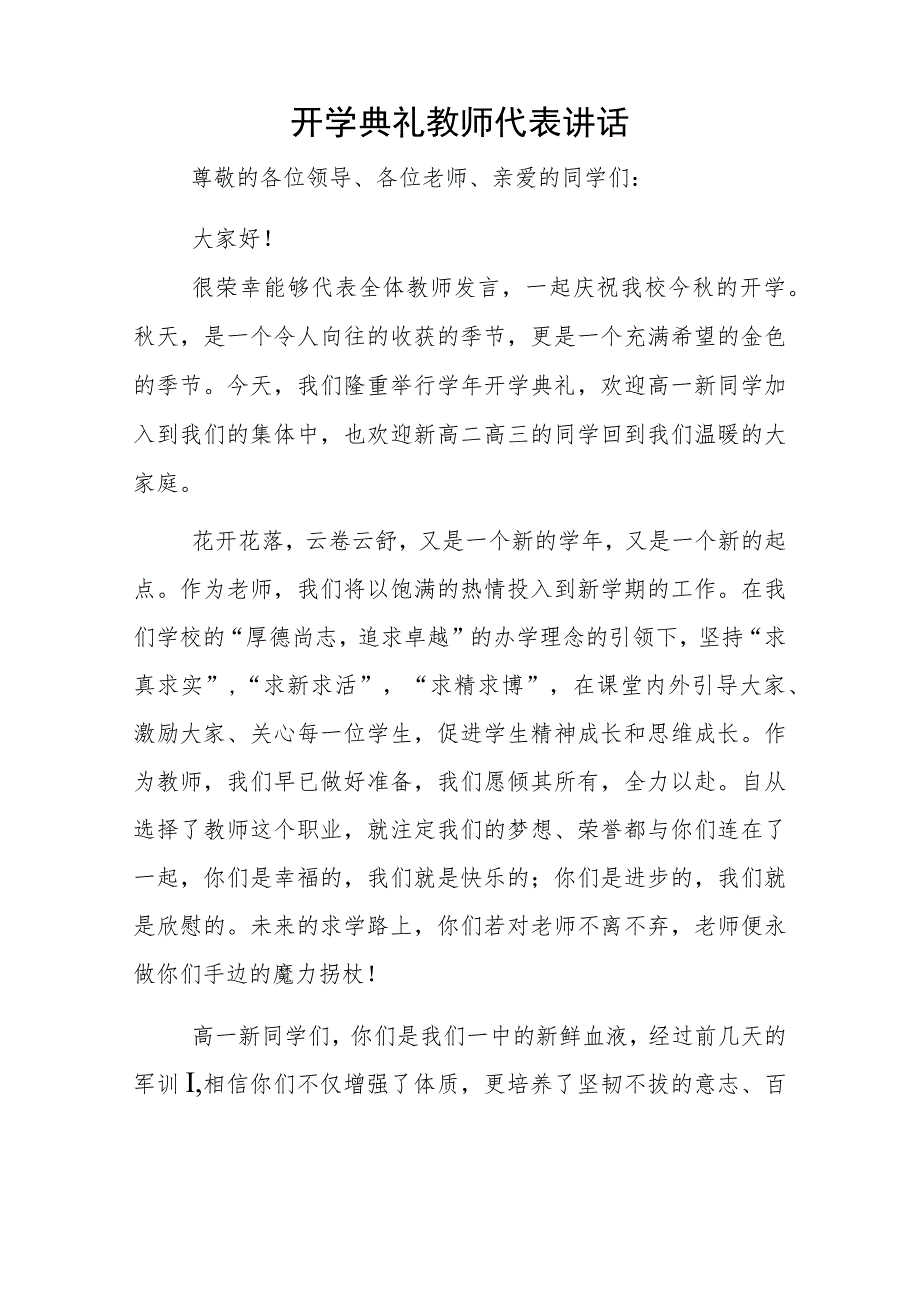 开学典礼教师代表讲话
尊敬的各位领导、各位老师、亲爱的同学们：
大家好！
很荣幸能够代表全体教师发言，一起庆祝我校今秋的开学。
秋天，是一个令人向往的收获的季节，更是一个充满希望的金色
的季节。今天，我们隆重举行学年开学典礼，欢迎高一新同学加
入到我们的集体中，也欢迎新高二高三的同学回到我们温暖的大
家庭。
花开花落，云卷云舒，又是一个新的学年，又是一个新的起
点。作为老师，我们将以饱满的热情投入到新学期的工作。在我
们学校的“厚德尚志，追求卓越”的办学理念的引领下，坚持“求
真求实”,“求新求活”，“求精求博”，在课堂内外引导大家、
激励大家、关心每一位学生，促进学生精神成长和思维成长。作
为教师，我们早已做好准备，我们愿倾其所有，全力以赴。自从
选择了教师这个职业，就注定我们的梦想、荣誉都与你们连在了
一起，你们是幸福的，我们就是快乐的；你们是进步的，我们就
是欣慰的。未来的求学路上，你们若对老师不离不弃，老师便永
做你们手边的魔力拐杖！
高一新同学们，你们是我们一中的新鲜血液，经过前几天的
军训I,相信你们不仅增强了体质，更培养了坚韧不拔的意志、百